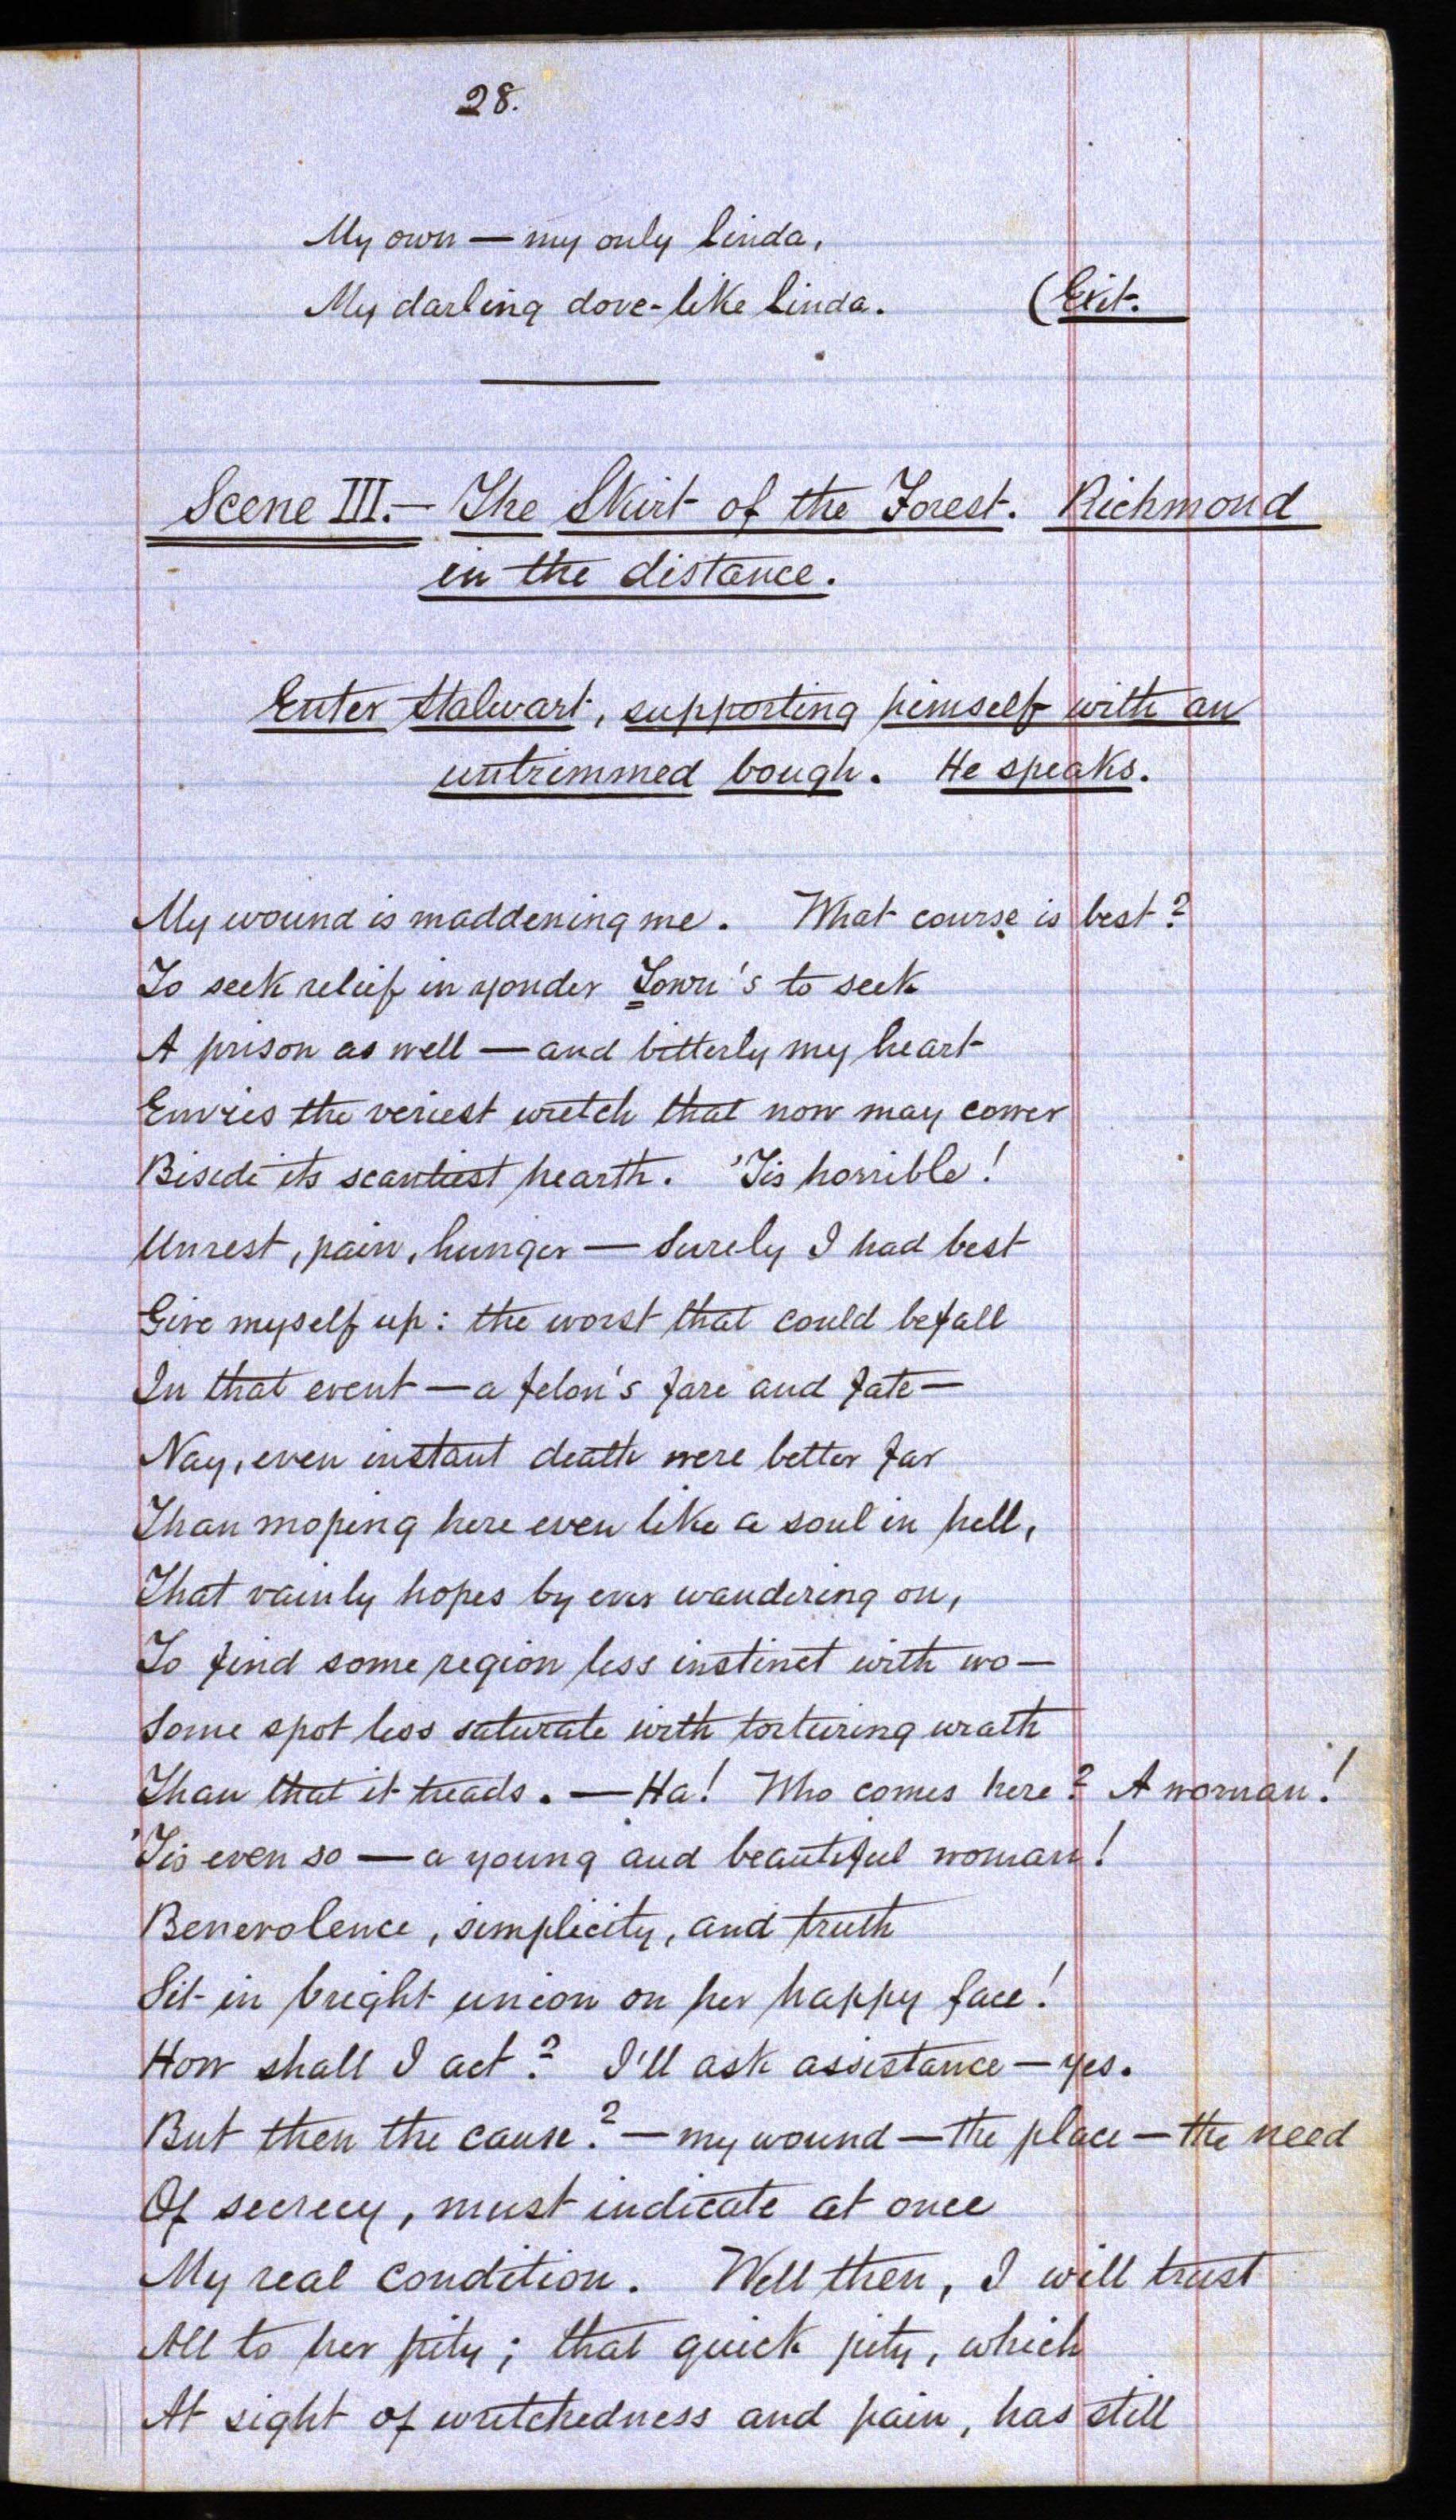 28.
My own — my only Linda,
My darling dove-like Linda. (Exit.
Scene III. — The Skirt of the Forest. Richmond
in the distance.
Enter Stalwart, supporting himself with an
untrimmed bough. He speaks.
My wound is maddening me. What course is best?
To seek relief in yonder Town's to seek
A prison as well — and bitterly my heart
Envies the veriest wretch that now may cower
Beside its scantiest hearth. 'Tis horrible!
Unrest, pain, hunger — Surely I had best
Give myself up: the worst that could befall
In that event — a felon's fare and fate —
Nay, even instant death were better far
Than moping here even like a soul in hell,
That vainly hopes by ever wandering on,
To find some region less instinct with wo —
Some spot less saturate with torturing wrath
Than that it treads. — Ha! Who comes here? A woman!
'Tis even so — a young and beautiful woman!
Benevolence, simplicity, and truth
Sit in bright union on her happy face!
How shall I act? I'll ask assistance — yes.
But then the cause? — my wound — the place — the need
Of secrecy, must indicate at once
My real condition. Well then, I will trust
All to her pity; that quick pity, which
At sight of wretchedness and pain, has still